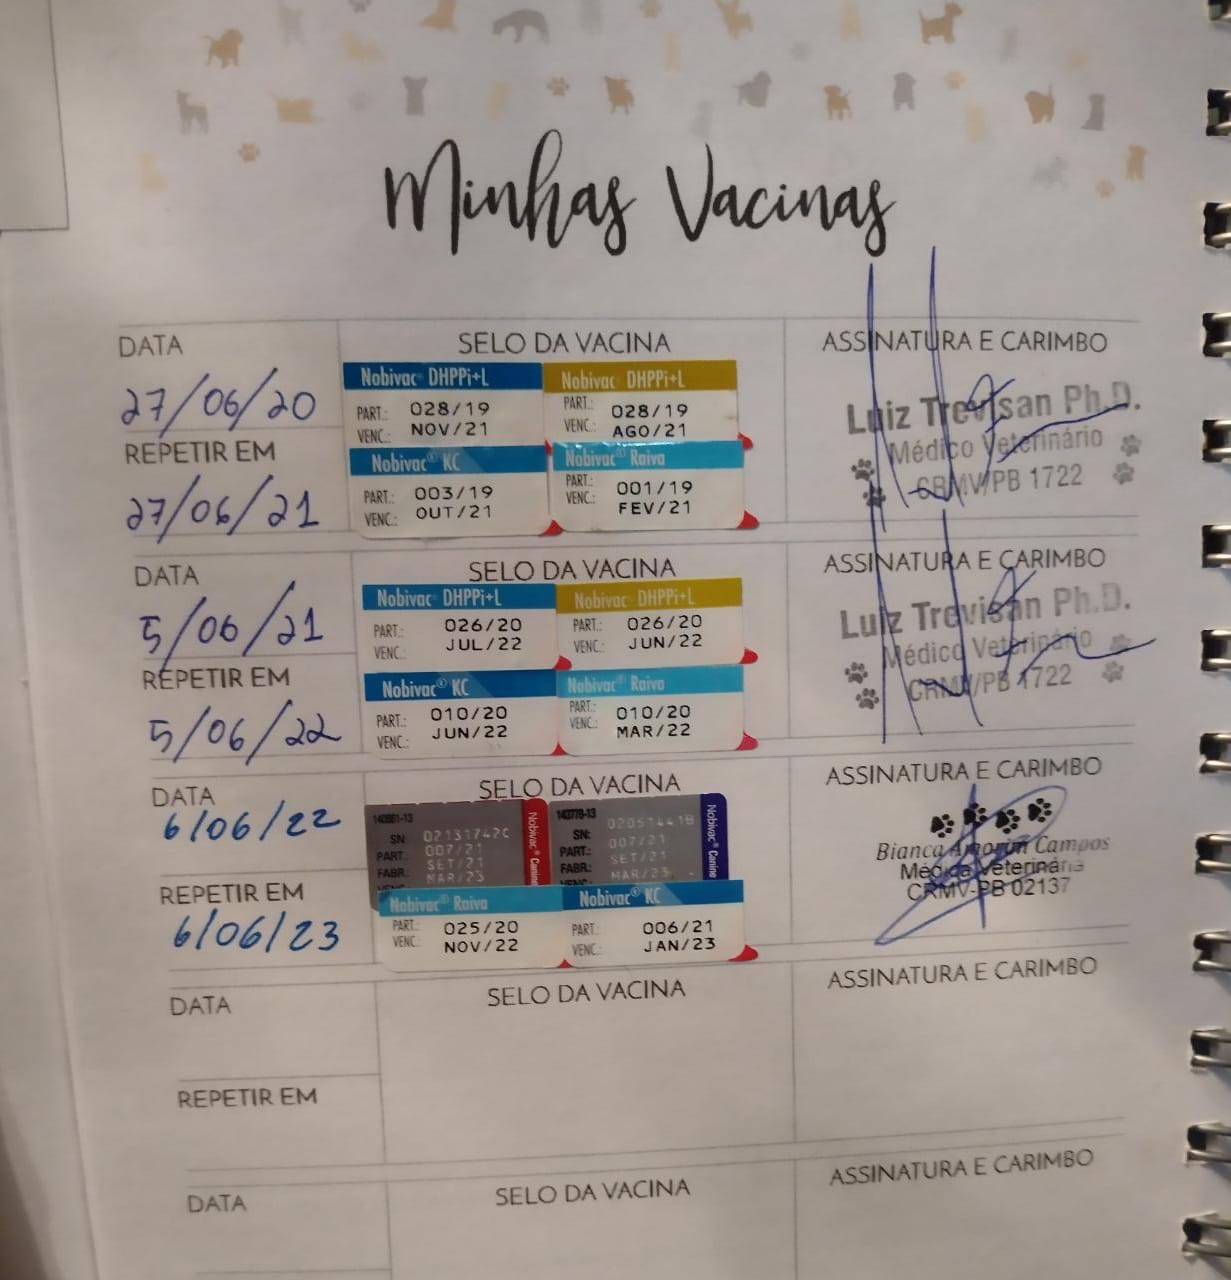 Minhas Vacinas
DATA
27/06/20
REPETIR EM
27/06/21
SELO DA VACINA
Nobivac® DHPPi+L
PART.: 028/19
VENC.: NOV/21
Nobivac® DHPPi+L
PART.: 028/19
VENC.: AGO/21
Nobivac® KC
PART.: 003/19
VENC.: OUT/21
Nobivac® Raiva
PART.: 001/19
VENC.: FEV/21
ASSINATURA E CARIMBO
Luiz Trevisan Ph.D.
Médico Veterinário
CRMV/PB 1722
DATA
5/06/21
REPETIR EM
5/06/22
SELO DA VACINA
Nobivac® DHPPi+L
PART.: 026/20
VENC.: JUL/22
Nobivac® DHPPi+L
PART.: 026/20
VENC.: JUN/22
Nobivac® KC
PART.: 010/20
VENC.: JUN/22
Nobivac® Raiva
PART.: 010/20
VENC.: MAR/22
ASSINATURA E CARIMBO
Luiz Trevisan Ph.D.
Médico Veterinário
CRMV/PB 1722
DATA
6/06/22
REPETIR EM
6/06/23
SELO DA VACINA
SN: 02131742C
PART.: 007/21
FABR.: SET/21
VENC.: MAR/23
Nobivac® Canine
143778-13
SN: 02051441B
PART.: 007/21
FABR.: SET/21
VENC.: MAR/23
Nobivac® Canine
Nobivac® Raiva
PART.: 025/20
VENC.: NOV/22
Nobivac® KC
PART.: 006/21
VENC.: JAN/23
ASSINATURA E CARIMBO
Bianca Amorim Campos
Médica Veterinária
CRMV-PB 02137
DATA
REPETIR EM
SELO DA VACINA
ASSINATURA E CARIMBO
DATA
SELO DA VACINA
ASSINATURA E CARIMBO